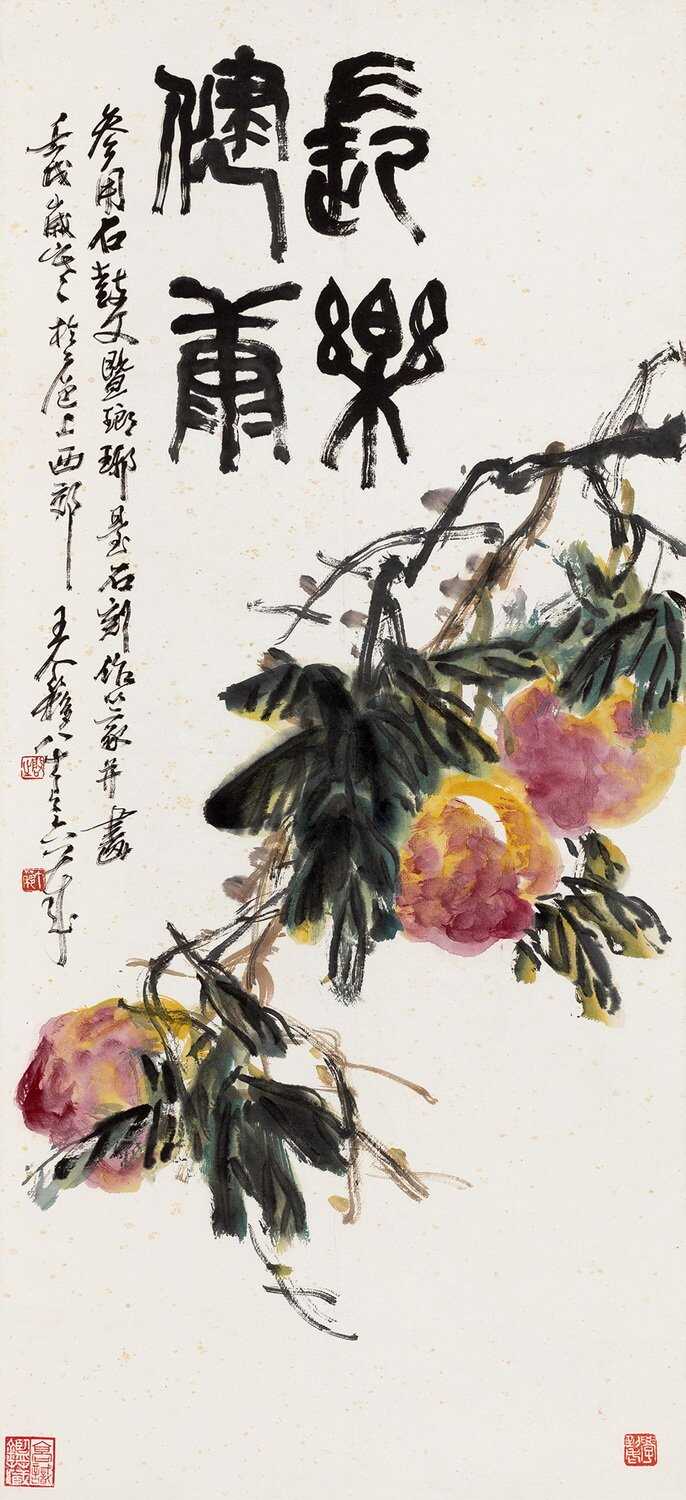 長樂
健康
參用石鼓文暨瑯琊臺石刻作篆并畫
壬戌歲寒於滬上西郊 王个簃八十又六歲